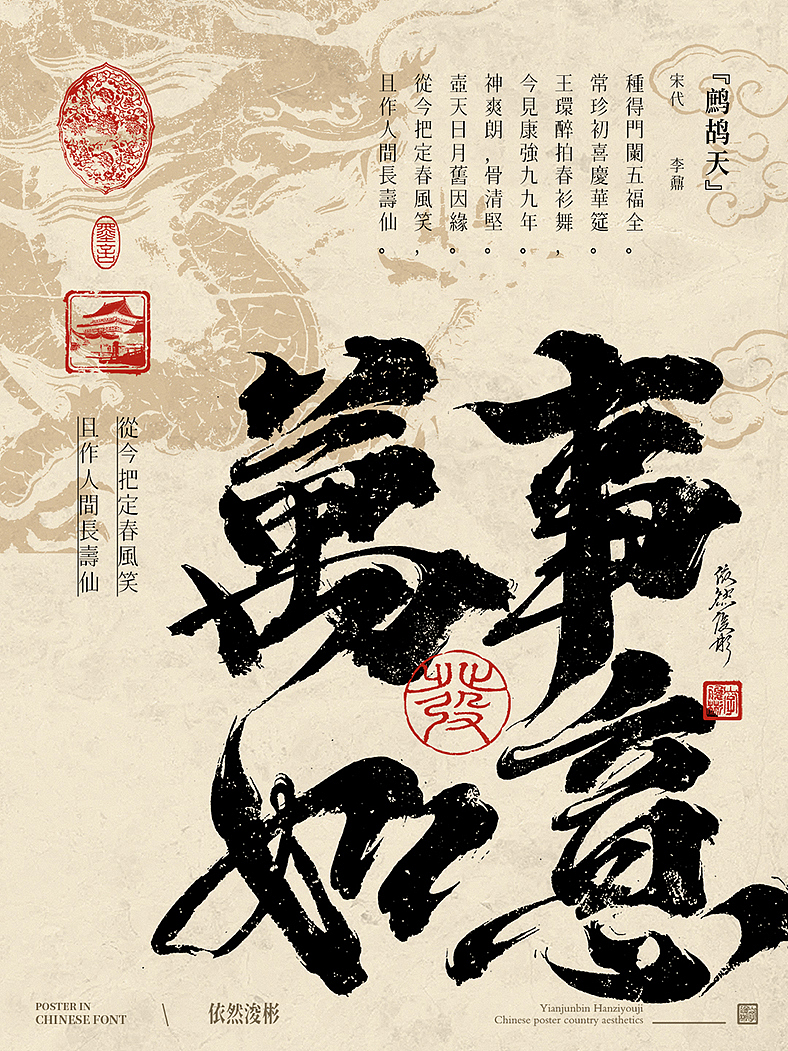 『鹧鸪天』
宋代 李鼐
種得門闌五福全。
常珍初喜慶華筵。
王環醉拍春衫舞,
今見康強九九年。
神爽朗,骨清堅。
壺天日月舊因緣
從今把定春風笑,
且作人間長壽仙。
從今把定春風笑
且作人間長壽仙
萬事
如意
發
依然浚彬
POSTER IN
CHINESE FONT
\
依然浚彬
Yianjunbin Hanziyouji
Chinese poster country aesthetics